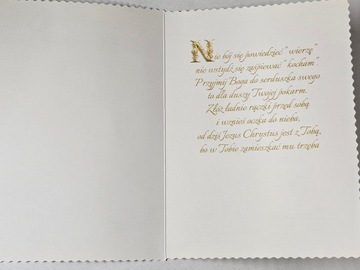 Nie bój się powiedzieć "wierzę"
nie wstydź się zaśpiewać "kocham"
Przyjmij Boga do serduszka swego
to dla duszy Twojej pokarm.
Złóż ładnie rączki przed sobą
i wznieś oczka do nieba,
od dziś Jezus Chrystus jest z Tobą,
bo w Tobie zamieszkać mu trzeba